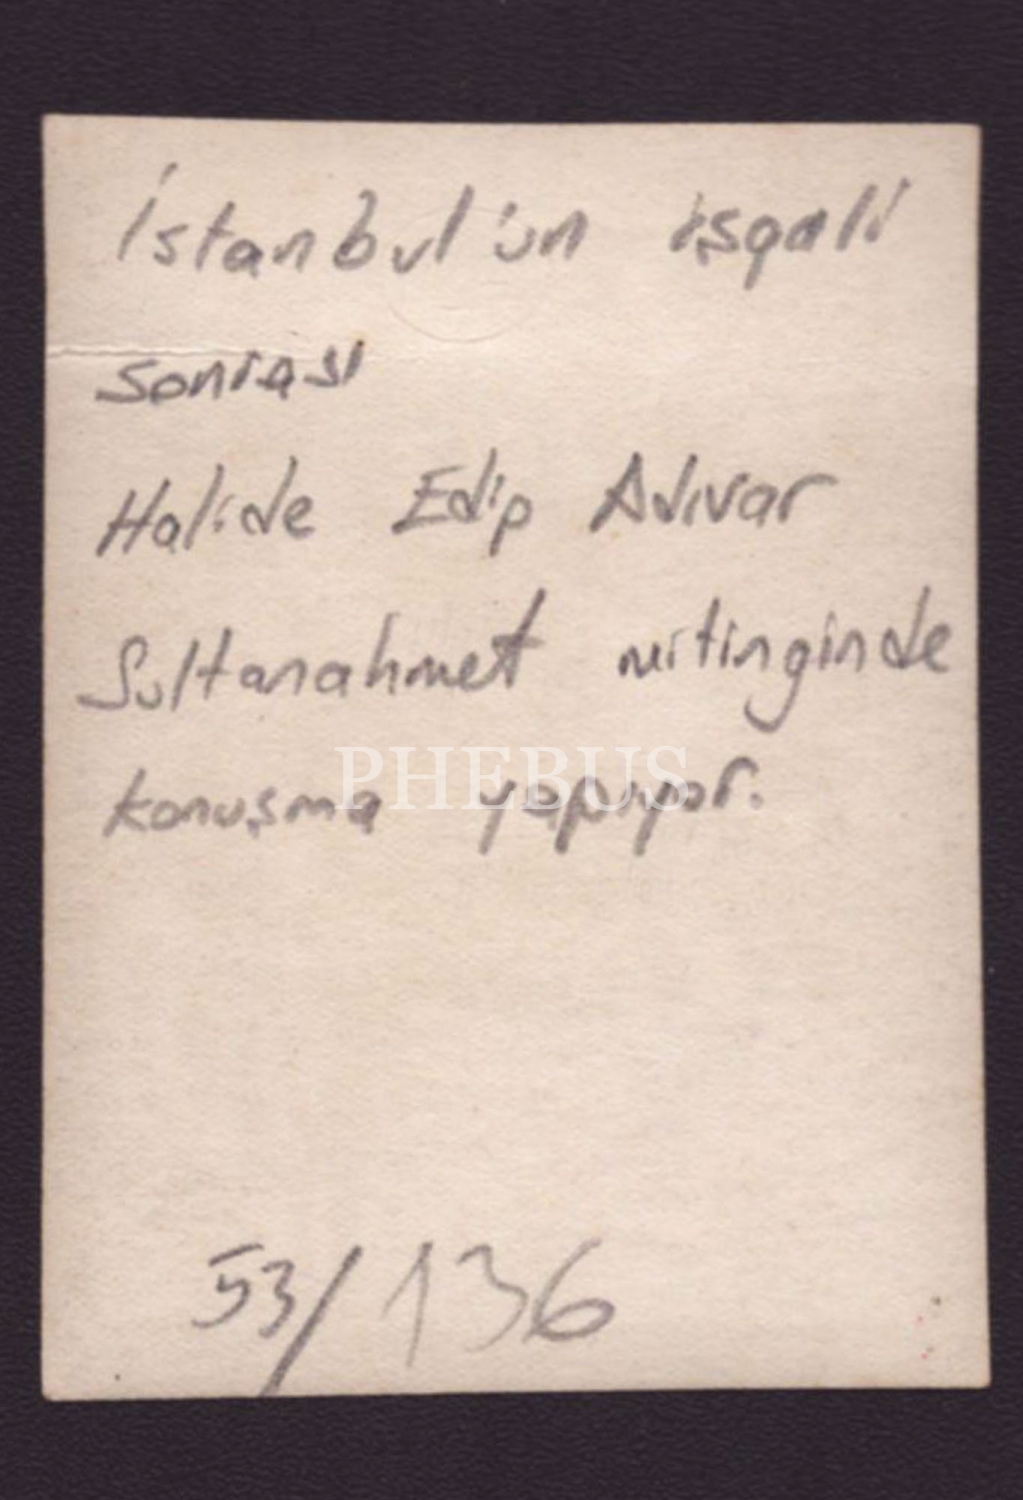 İstanbul'un işgali
sonrası
Halide Edip Adıvar
Sultanahmet mitinginde
PHEBUS
konuşma yapıyor.
53/136